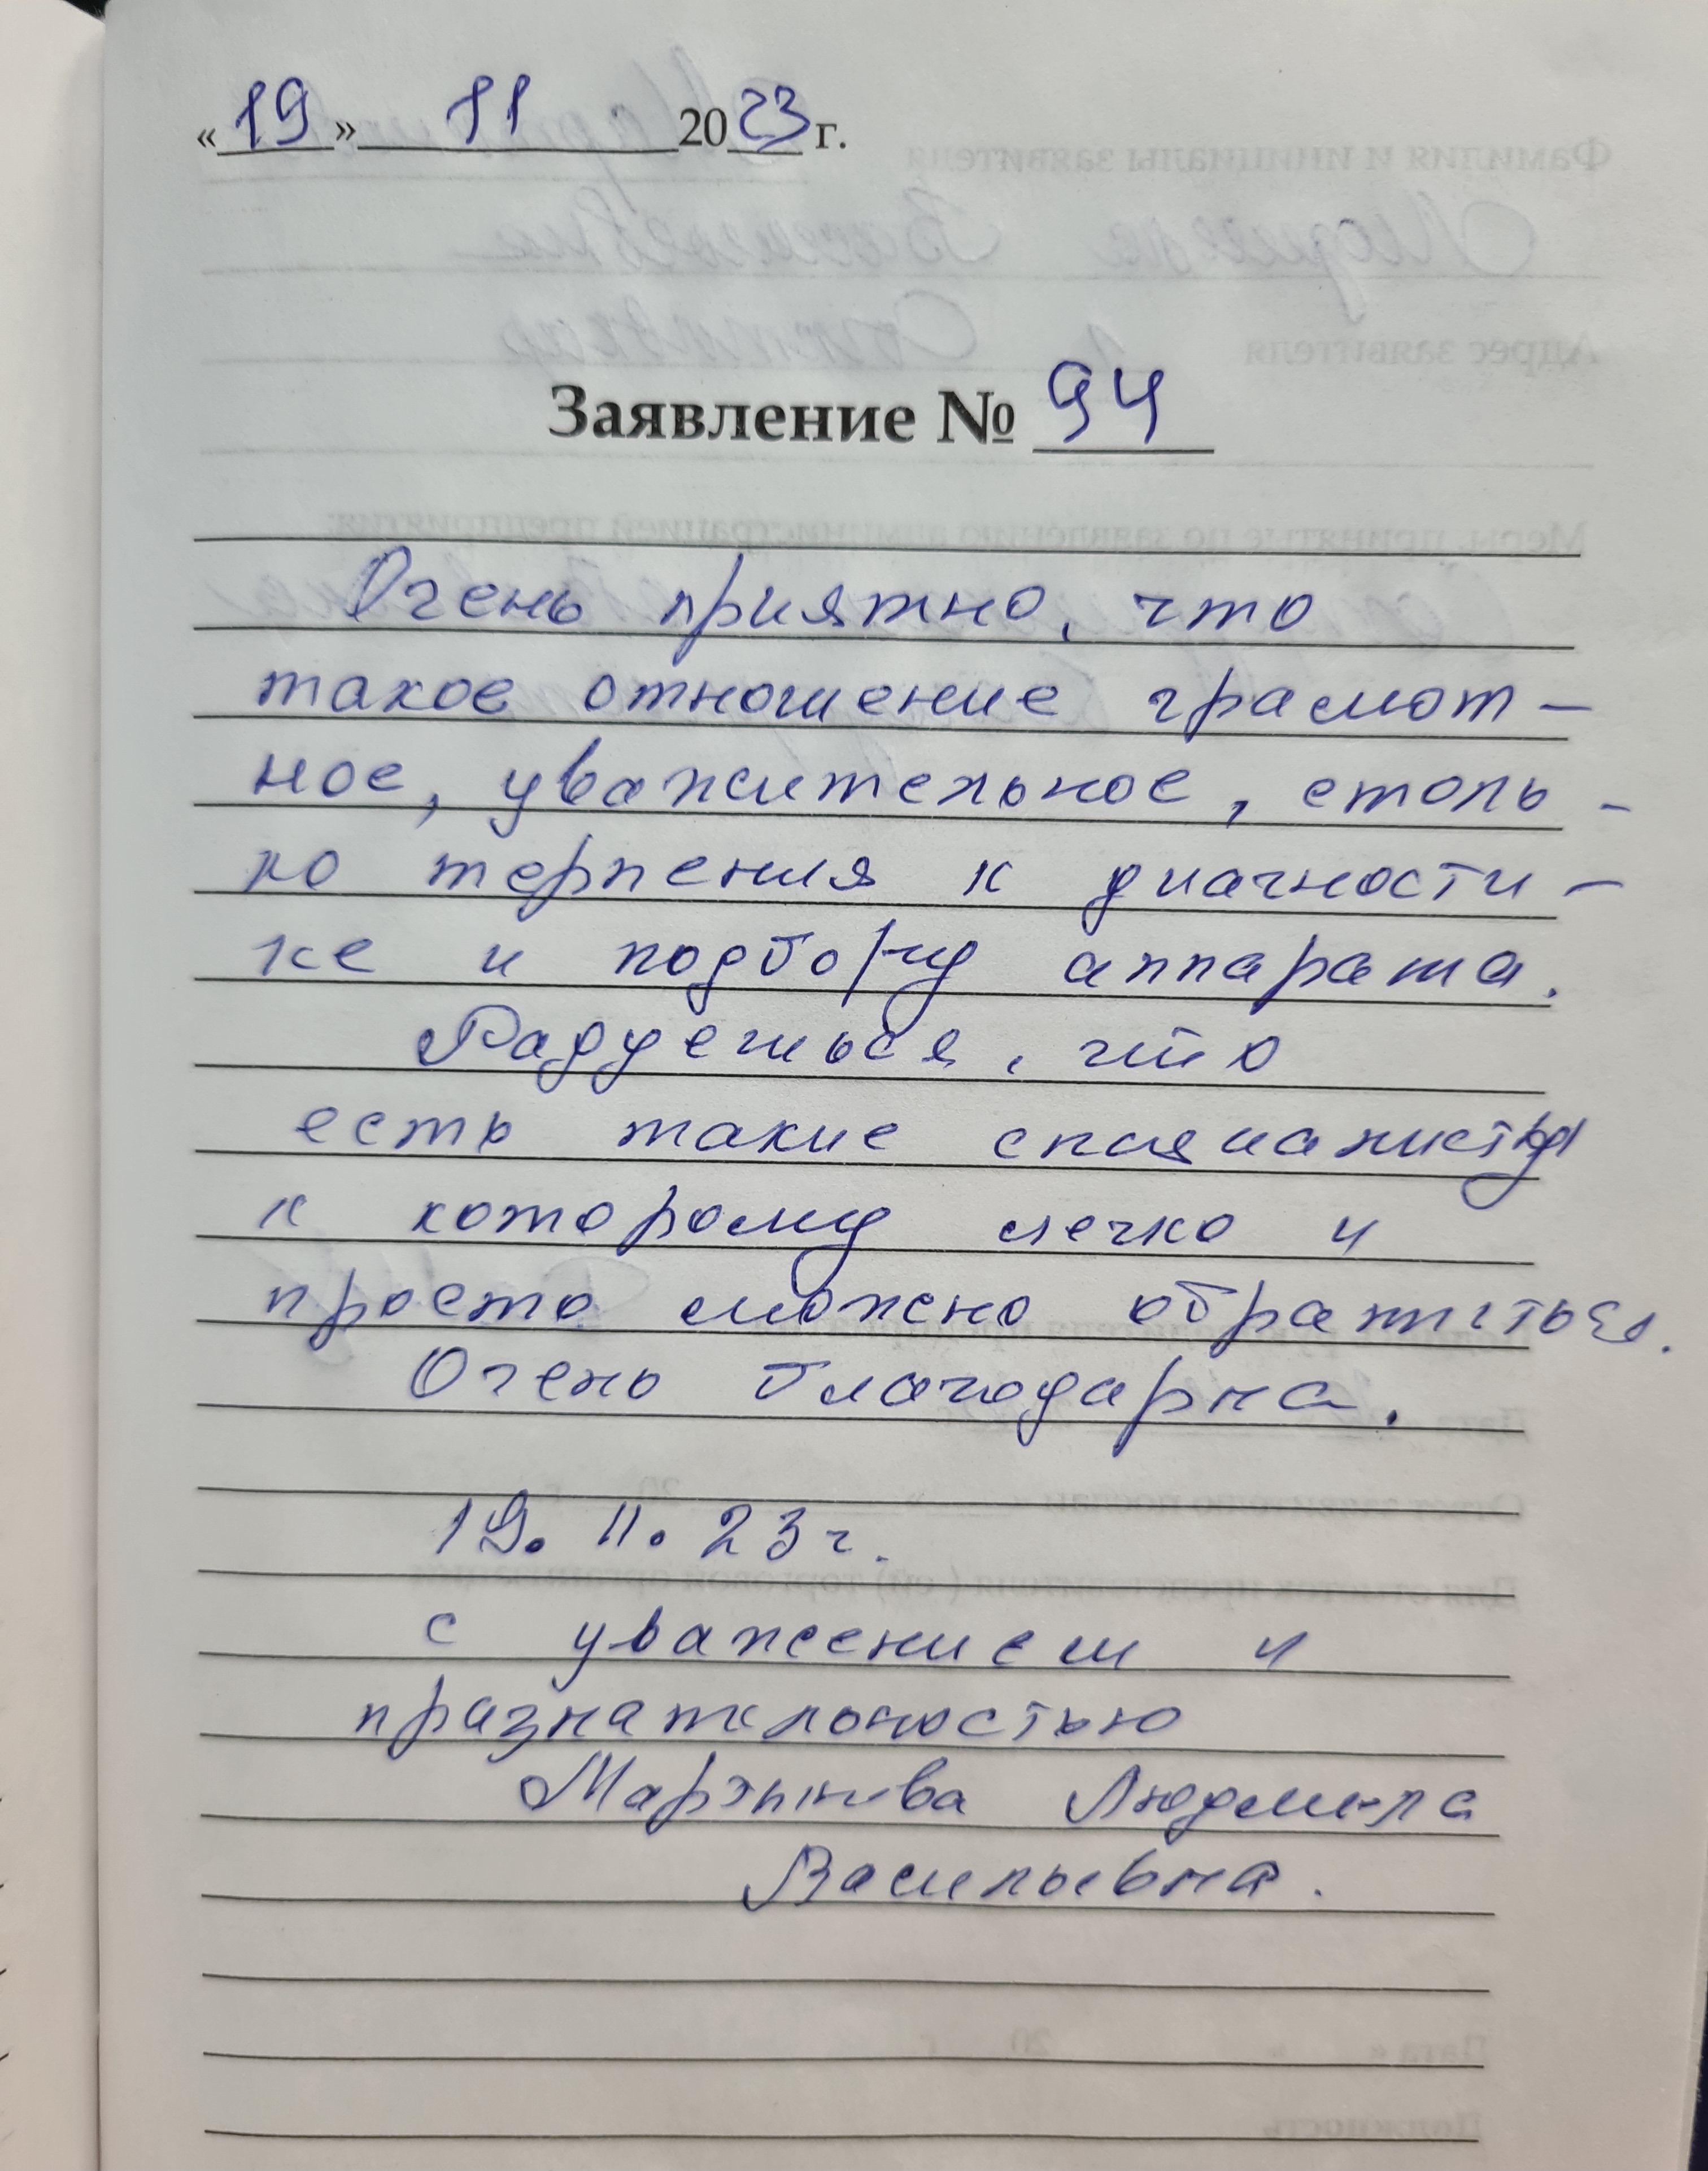 «19» 11 2023 г.
Заявление № 94
Очень приятно, что
такое отношение грамот-
ное, уважительное, столь-
ко терпения к диагности-
ке и подбору аппарата.
Радуешься, что
есть такие специалисты
к которому легко и
просто можно обратиться.
Очень благодарна.
19. 11. 23 г.
с уважением и
признательностью
Мартынова Людмила
Васильевна.